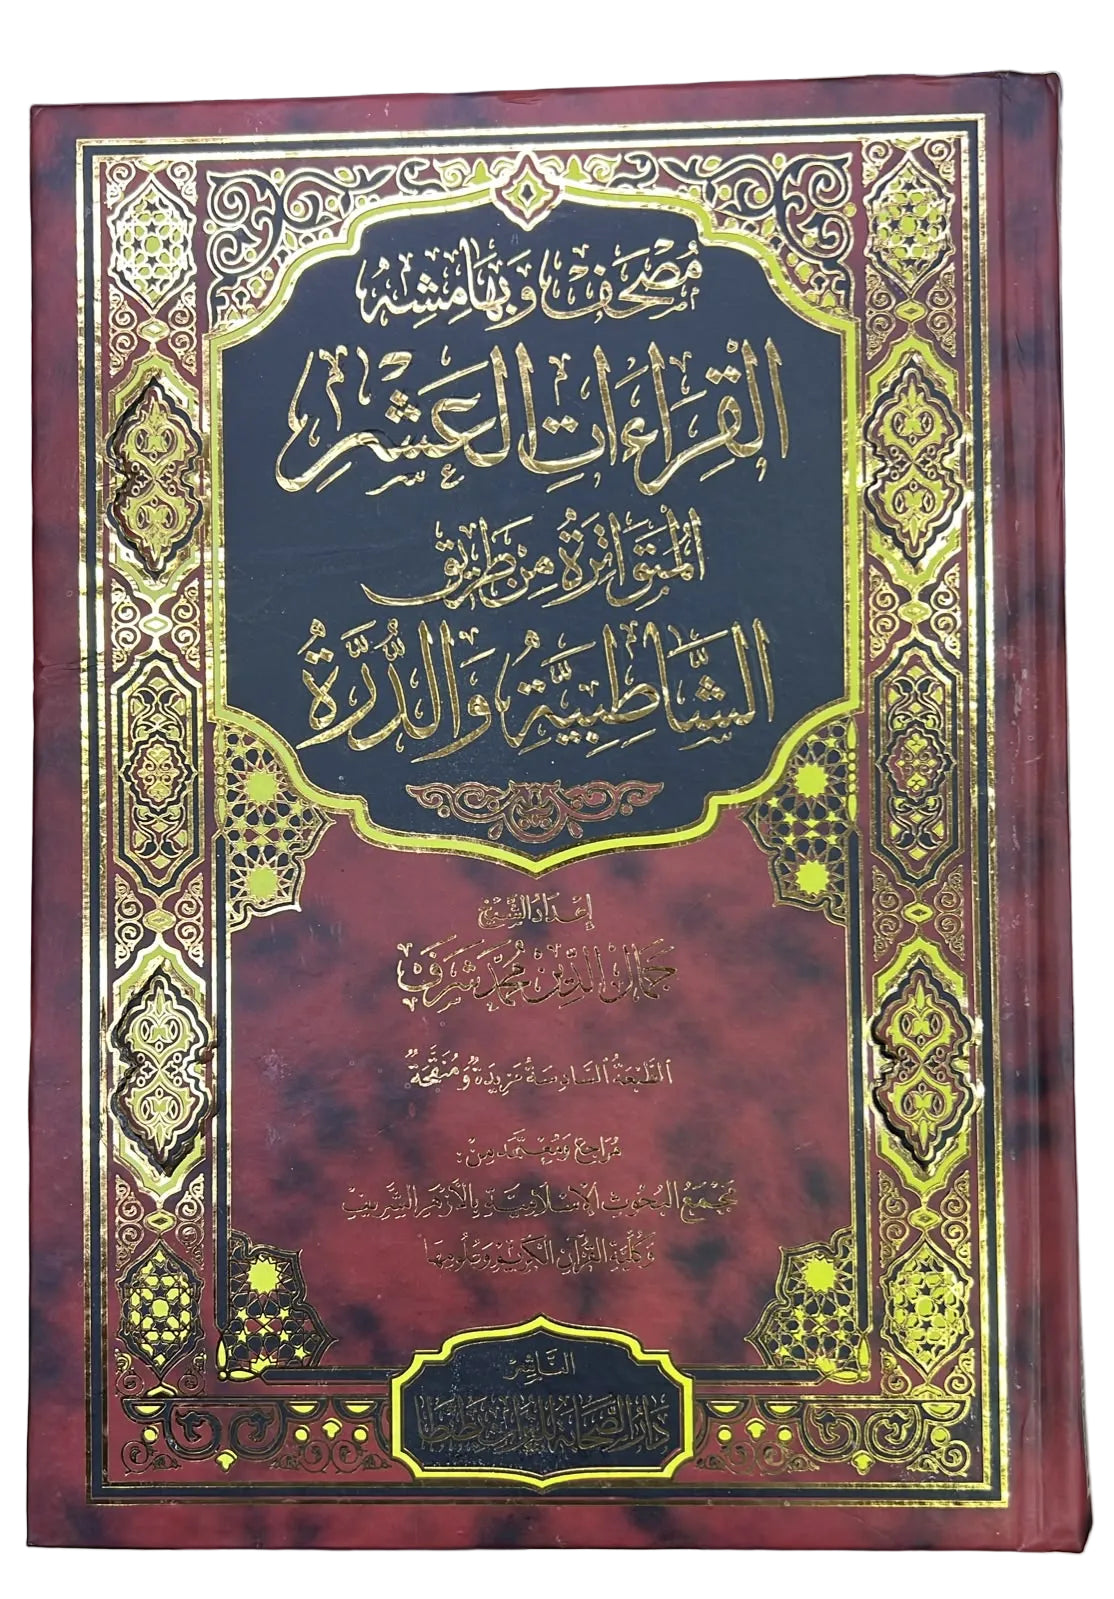 مُصْحَفٌ وَبِهَامِشِهِ
القِرَاءَاتُ العَشْرِ
المُتَوَاتِرَةُ مِنْ طَرِيقِ
الشَّاطِبِيَّةِ وَالدُّرَّةُ
إعداد الشيخ
جمال الدين محمد شرف
الطبعة السادسة مزيدة ومنقحة
مراجع ومعتمد من:
مجمع البحوث الإسلامية بالأزهر الشريف
وكلية القرآن الكريم وعلومها
الناشر
دار الصحابة للتراث بطنطا